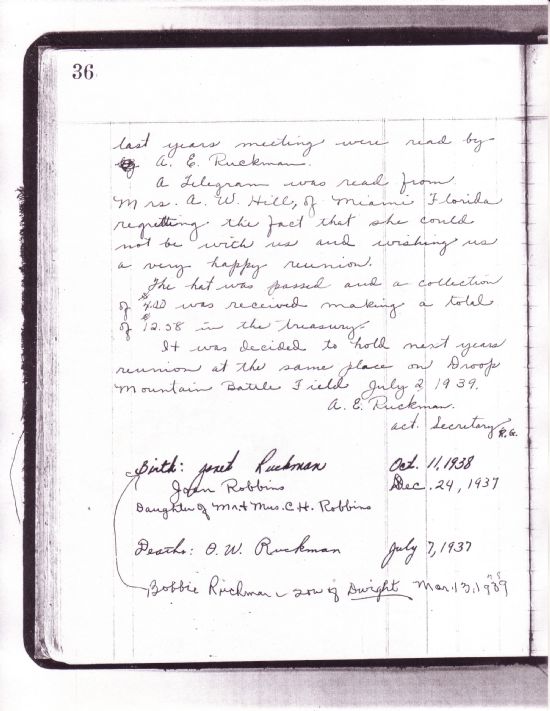 36
last years meeting were read by
A. E. Ruckman.
A Telegram was read from
Mrs. A. W. Hill, of Miami Florida
regretting the fact that she could
not be with us and wishing us
a very happy reunion.
The hat was passed and a collection
of $4.20 was received making a total
of $12.58 in the treasury.
It was decided to hold next years
reunion at the same place on Droop
Mountain Battle Field July 2 1939.
A. E. Ruckman.
act. Secretary R.G.
Birth: Janet Ruckman Oct. 11, 1938
Joan Robbins Dec. 24, 1937
Daughter of Mr & Mrs. C.H. Robbins
Deaths: O. W. Ruckman July 7, 1937
Bobbie Ruckman son of Dwight Mar. 13, 1939